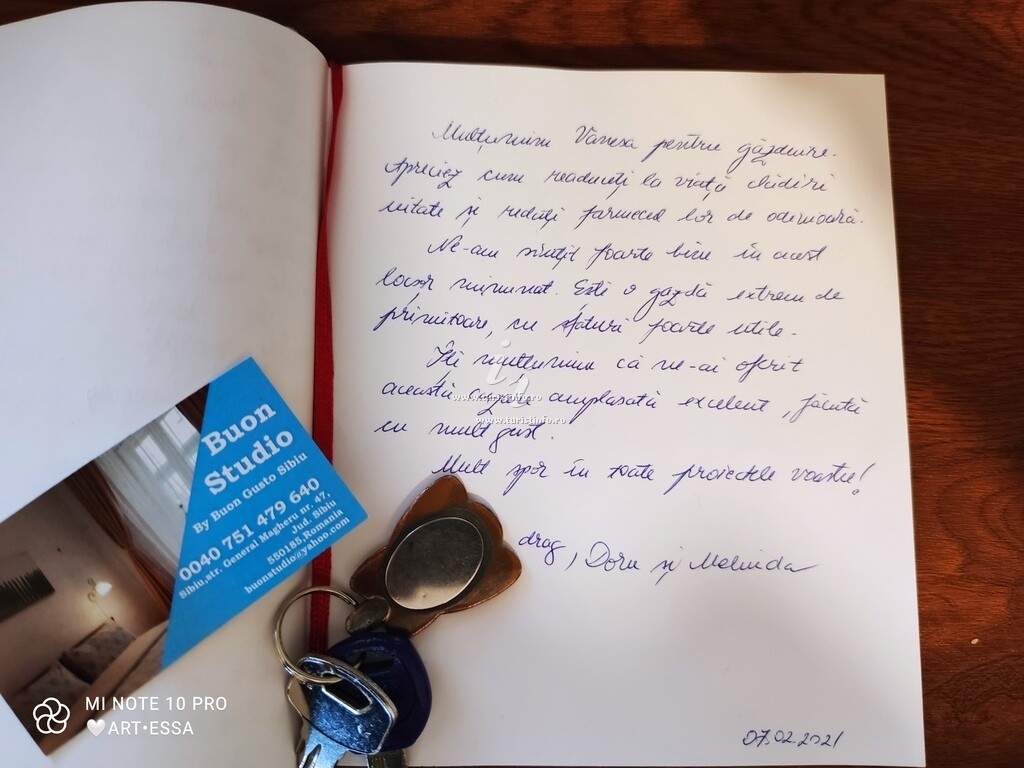 Mulțumim Vanesa pentru găzduire.
Apreciez cum readuceți la viață clădiri
uitate și redați farmecul lor de odinioară.
Ne-am simțit foarte bine în acest
locșor minunat. Ești o gazdă extrem de
primitoare, cu sfaturi foarte utile.
Îți mulțumim că ne-ai oferit
această cazare amplasată excelent, făcută
cu mult gust.
Mult spor în toate proiectele voastre!
drag, Doru și Melinda
07.02.2021
www.turistinfo.ro
www.turistinfo.ro
Buon
Studio
By Buon Gusto Sibiu
0040 751 479 640
Sibiu,str. General Magheru nr. 47,
550185,Romania Jud. Sibiu
buonstudio@yahoo.com
MI NOTE 10 PRO
ART•ESSA